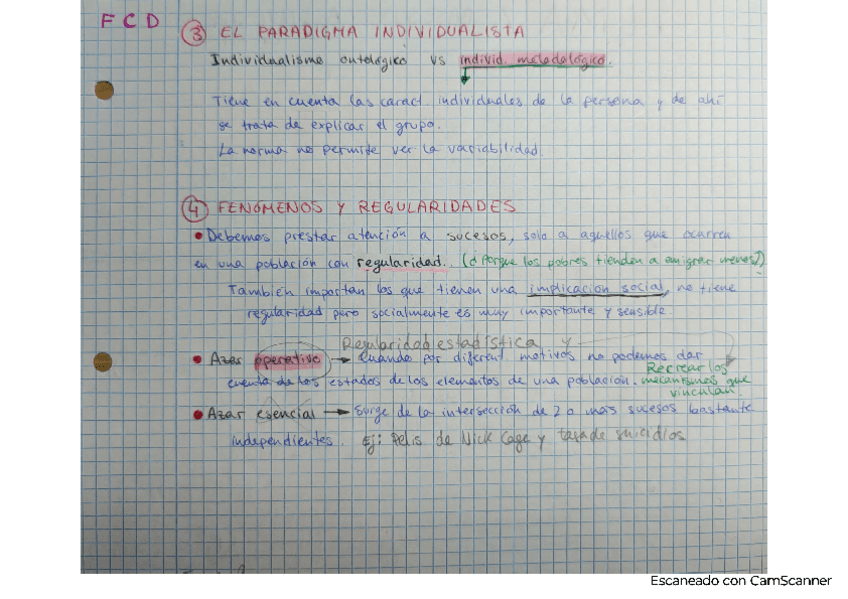 FCD
③ EL PARADIGMA INDIVIDUALISTA
Individualismo ontológico vs individ. metodológico.
Tiene en cuenta las caract. individuales de la persona y de ahí
se trata de explicar el grupo.
La norma no permite ver la variabilidad.
④ FENÓMENOS Y REGULARIDADES
• Debemos prestar atención a sucesos, solo a aquellos que ocurren
en una población con regularidad. (¿Porque los pobres tienden a emigrar menos?)
También importan los que tienen una implicación social, no tiene
regularidad pero socialmente es muy importante y sensible.
Regularidad estadística y
• Azar operativo → Cuando por diferent. motivos no podemos dar
Recrear los
cuenta de los estados de los elementos de una población. mecanismos que
vinculan
• Azar esencial → Surge de la intersección de 2 o más sucesos bastante
independientes. Ej: Pelis de Nick Cage y tasa de suicidios
Escaneado con CamScanner